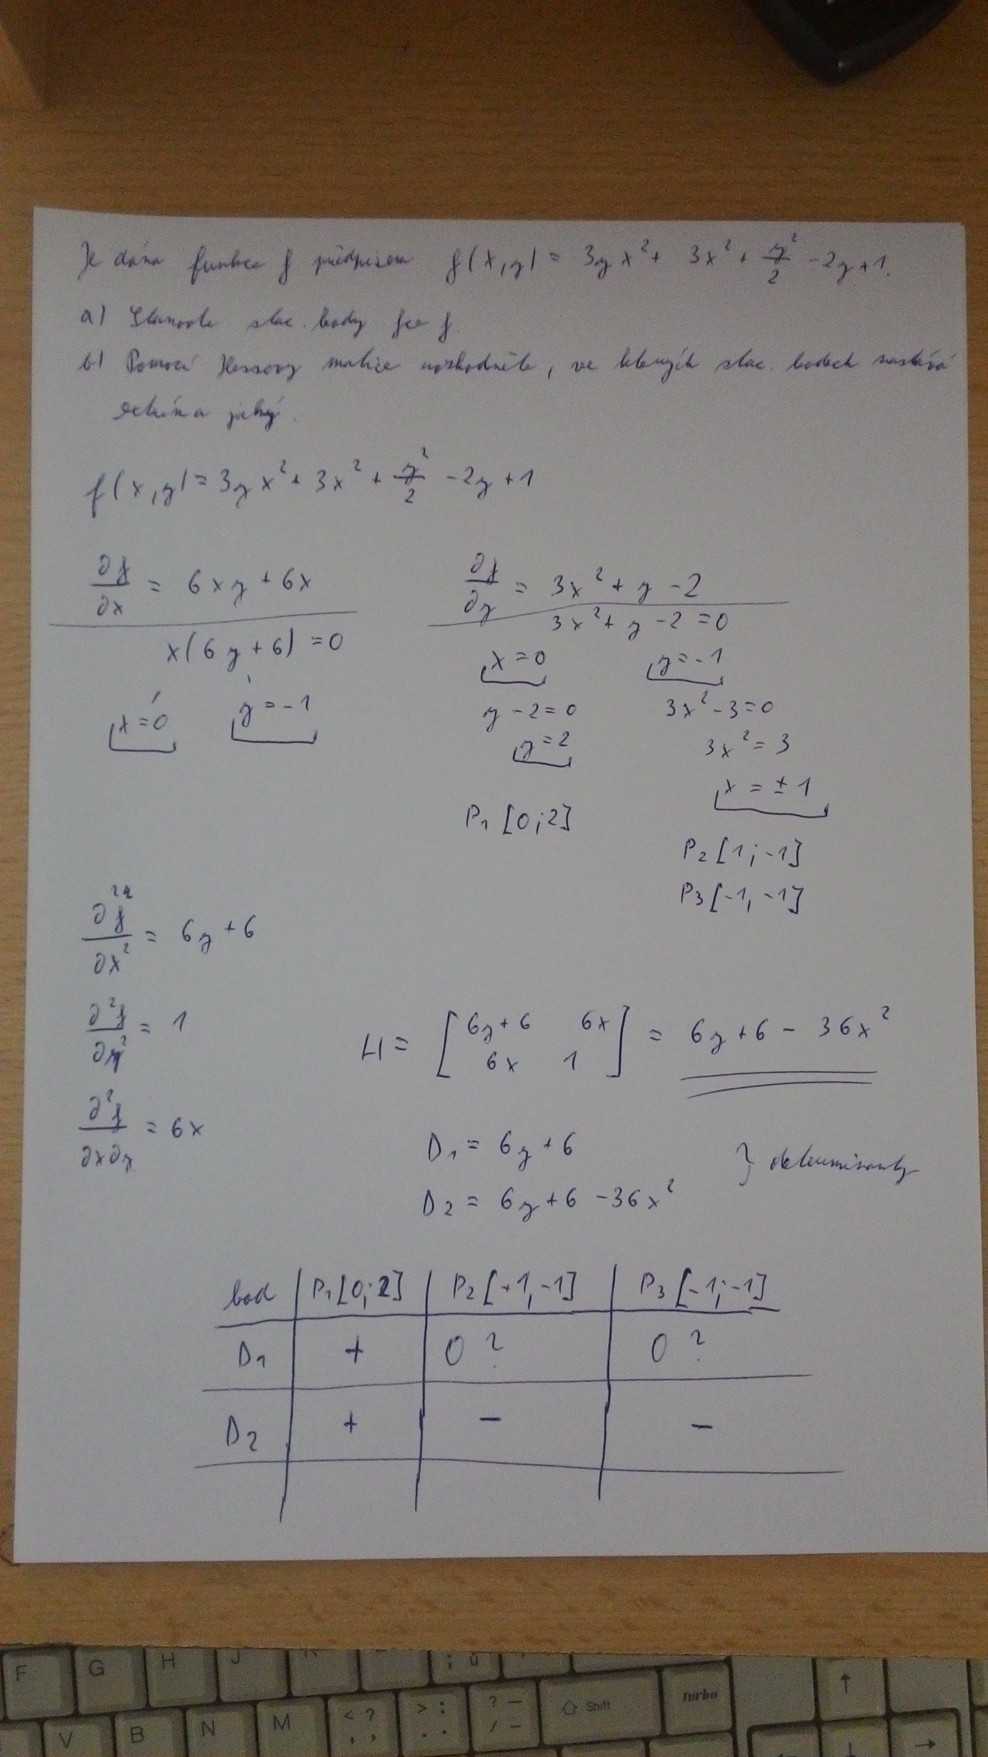 Je dána funkce f předpisem f(x,y) = 3yx² + 3x² + y²/2 - 2y + 1.
a) Stanovte stac. body fce f.
b) Pomocí Hessovy matice rozhodněte, ve kterých stac. bodech nastává
extrém a jaký.
f(x,y) = 3yx² + 3x² + y²/2 - 2y + 1
∂f/∂x = 6xy + 6x
x(6y + 6) = 0
x = 0 y = -1
∂f/∂y = 3x² + y - 2
3x² + y - 2 = 0
x = 0
y - 2 = 0
y = 2
P₁ [0; 2]
y = -1
3x² - 3 = 0
3x² = 3
x = ± 1
P₂ [1; -1]
P₃ [-1, -1]
∂²f/∂x² = 6y + 6
∂²f/∂y² = 1
∂²f/∂x∂y = 6x
H = [6y + 6 6x
6x 1] = 6y + 6 - 36x²
D₁ = 6y + 6
D₂ = 6y + 6 - 36x²
} determinanty
bod P₁ [0; 2] P₂ [+1, -1] P₃ [-1; -1]
D₁ + 0 ? 0 ?
D₂ + - -
F G H J K
; ů
V B N M < ? , , > : . . ? — / – ⇧ Shift Turbo ↑
↓ →